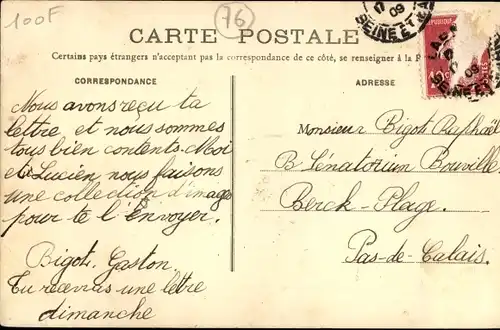 100F
76
CARTE POSTALE
Certains pays étrangers n'acceptant pas la correspondance de ce côté, se renseigner à la P
CORRESPONDANCE
ADRESSE
Nous avons reçu ta
lettre et nous sommes
tous bien contents. Moi
et Lucien, nous faisons
une collection d'images
pour te l'envoyer.
Bigot. Gaston
Tu recevras une lètre
dimanche
Monsieur Bigot Raphaël
B Sénatorium Bouville
Berck-Plage.
Pas-de-Calais.
17
09
SEINE ET